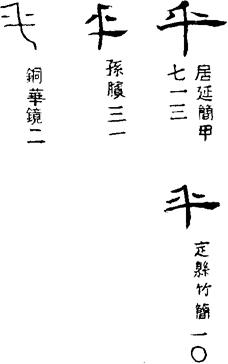 居延簡甲
七一三
定縣竹簡一〇
孫臏三一
銅華鏡二